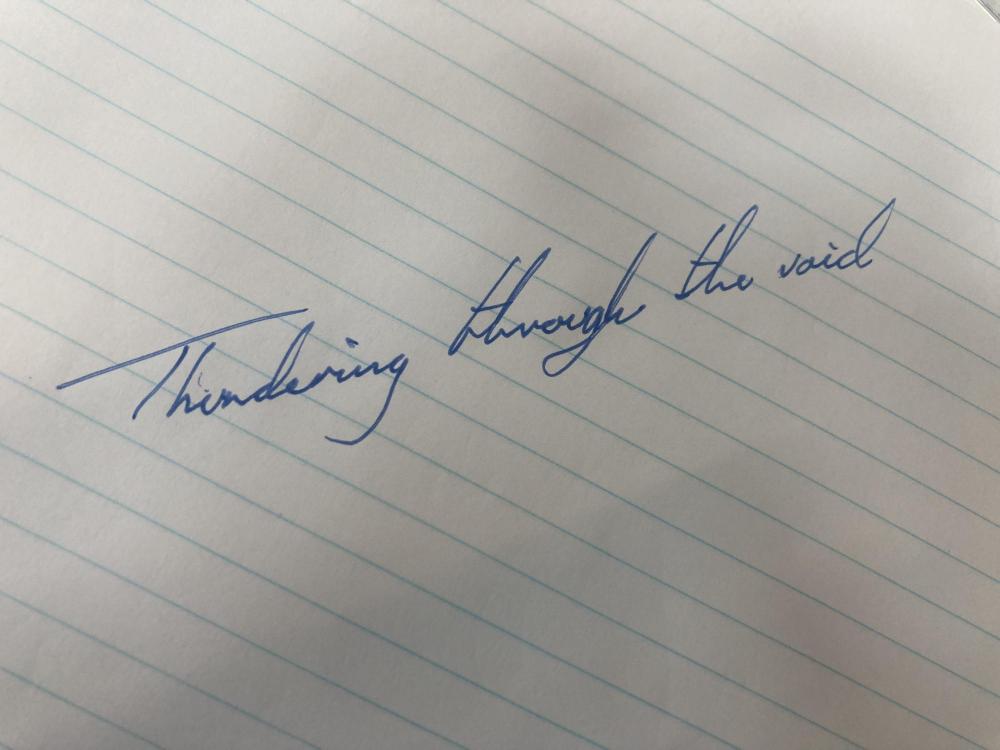 Thundering through the void